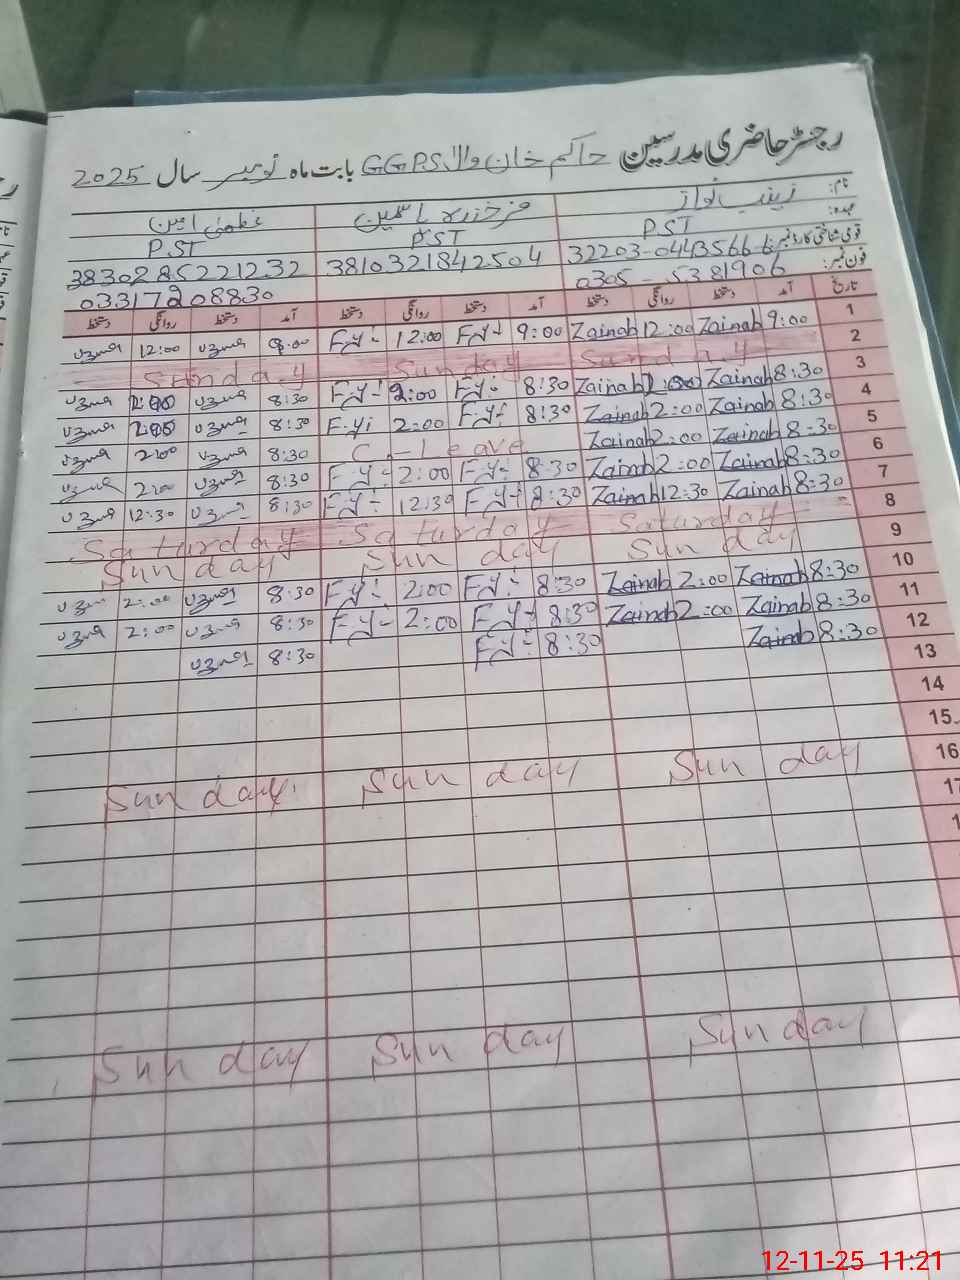 رجسٹر حاضری مدرسین حاکم خان والا GGPS بابت ماہ نومبر سال 2025
نام: زینب نواز فرخندہ یاسمین عظمیٰ امین
عہدہ: PST PST PST
قومی شناختی کارڈ نمبر: 32203-0443566-6 3810321842504 3830285221232
فون نمبر: 0305-5381906 03317208830
تاریخ آمد دستخط روانگی دستخط آمد دستخط روانگی دستخط آمد دستخط روانگی دستخط
1 9:00 Zainab 12:00 Zainab 9:00 12:00 9:00 عظمیٰ 12:00 عظمیٰ
2 Sunday Sunday Sunday
3 8:30 Zainab 2:00 Zainab 8:30 2:00 8:30 عظمیٰ 2:00 عظمیٰ
4 8:30 Zainab 2:00 Zainab 8:30 2:00 8:30 عظمیٰ 2:00 عظمیٰ
5 8:30 Zainab 2:00 Zainab C-Leave 8:30 عظمیٰ 2:00 عظمیٰ
6 8:30 Zainab 2:00 Zainab 8:30 2:00 8:30 عظمیٰ 2:00 عظمیٰ
7 8:30 Zainab 12:30 Zainab 8:30 12:30 8:30 عظمیٰ 12:30 عظمیٰ
8 Saturday Saturday Saturday
9 Sunday Sunday Sunday
10 8:30 Zainab 2:00 Zainab 8:30 2:00 8:30 عظمیٰ 2:00 عظمیٰ
11 8:30 Zainab 2:00 Zainab 8:30 2:00 8:30 عظمیٰ 2:00 عظمیٰ
12 8:30 Zainab 8:30 8:30 عظمیٰ
13
14
15
16 Sunday Sunday Sunday
17
Sunday Sunday Sunday
12-11-25 11:21